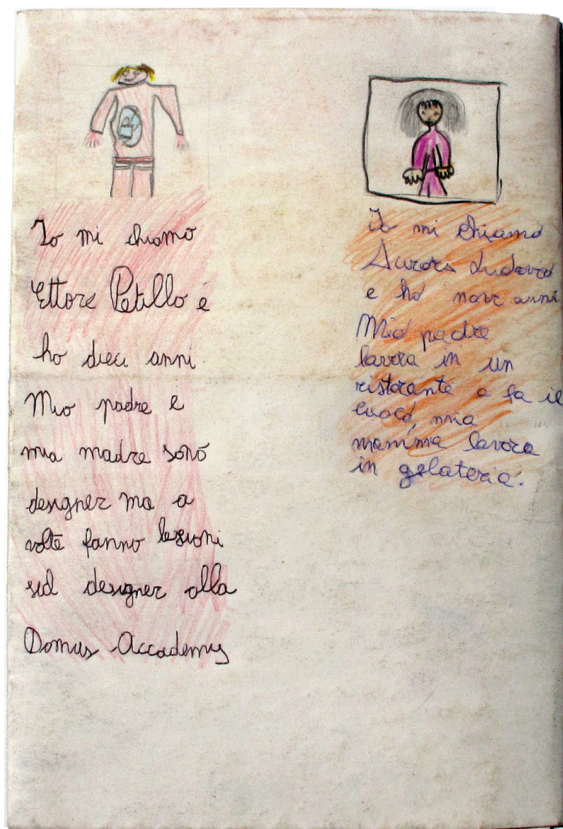 Io mi chiamo
Ettore Petillo é
ho dieci anni
Mio padre e
mia madre sono
designer ma a
volte fanno lezioni
sul designer alla
Domus Accademy
Io mi chiamo
Aurora
e ho nove anni
Mio padre
lavora in un
ristorante e fa il
cuoco, mia
mamma lavora
in gelateria.